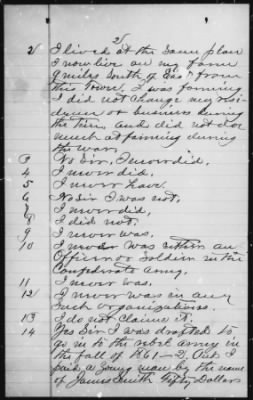 2/
2 I lived at the same place
I now live on my farm
9 miles South of Eas" from
this Town, I was farming
I did not change my resi-
dence or business during
the term, and did not do
much at farming during
the war.
3 No Sir, I never did,
4 I never did,
5 I never have
6 No Sir I was not,
7 I never did,
8 I did not,
9 I never was.
10 I never was either an
Officer or Soldier in the
Confederate army,
11 I never was.
12 I never was in any
such organizations.
13 I do not claim it.
14 Yes Sir I was drafted to
go in to the rebel army in
the fall of 1861-2, But I
paid a young man by the
name of James Smith Fifty Dollars